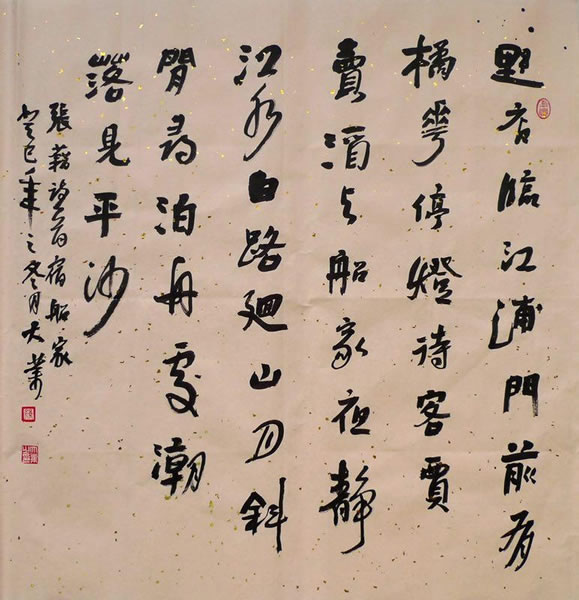 野店臨江浦門前有
橘華停燈待客賈
賣酒与船家夜靜
江水白路廻山月斜
閒尋泊舟處潮
落見平沙
張籍詩一首宿船家
癸巳年之冬月大